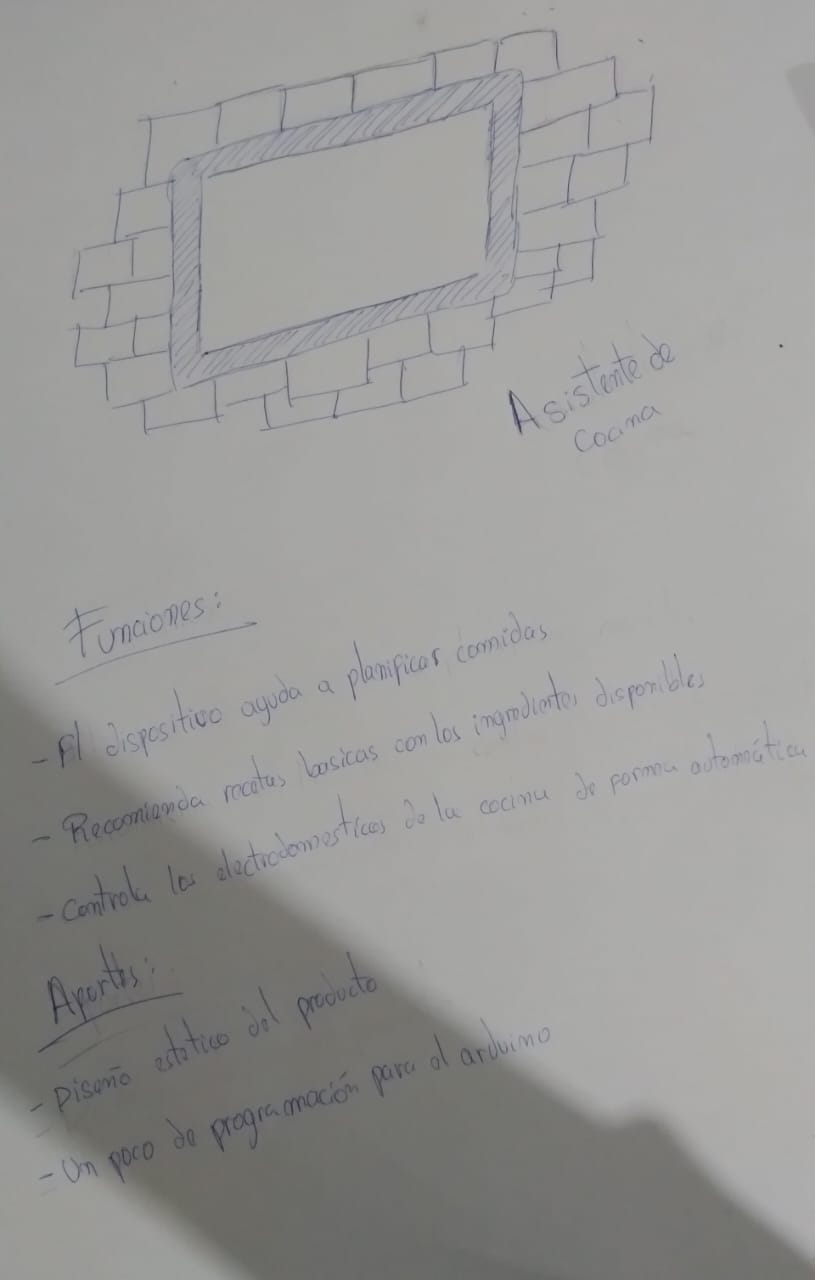 Asistente de
cocina
Funciones:
- El dispositivo ayuda a planificar comidas
- Recomienda recetas basicas con los ingredientes disponibles
- Controla los electrodomesticos de la cocina de forma automática
Aportes:
- Diseño estetico del producto
- Un poco de programación para el arduino